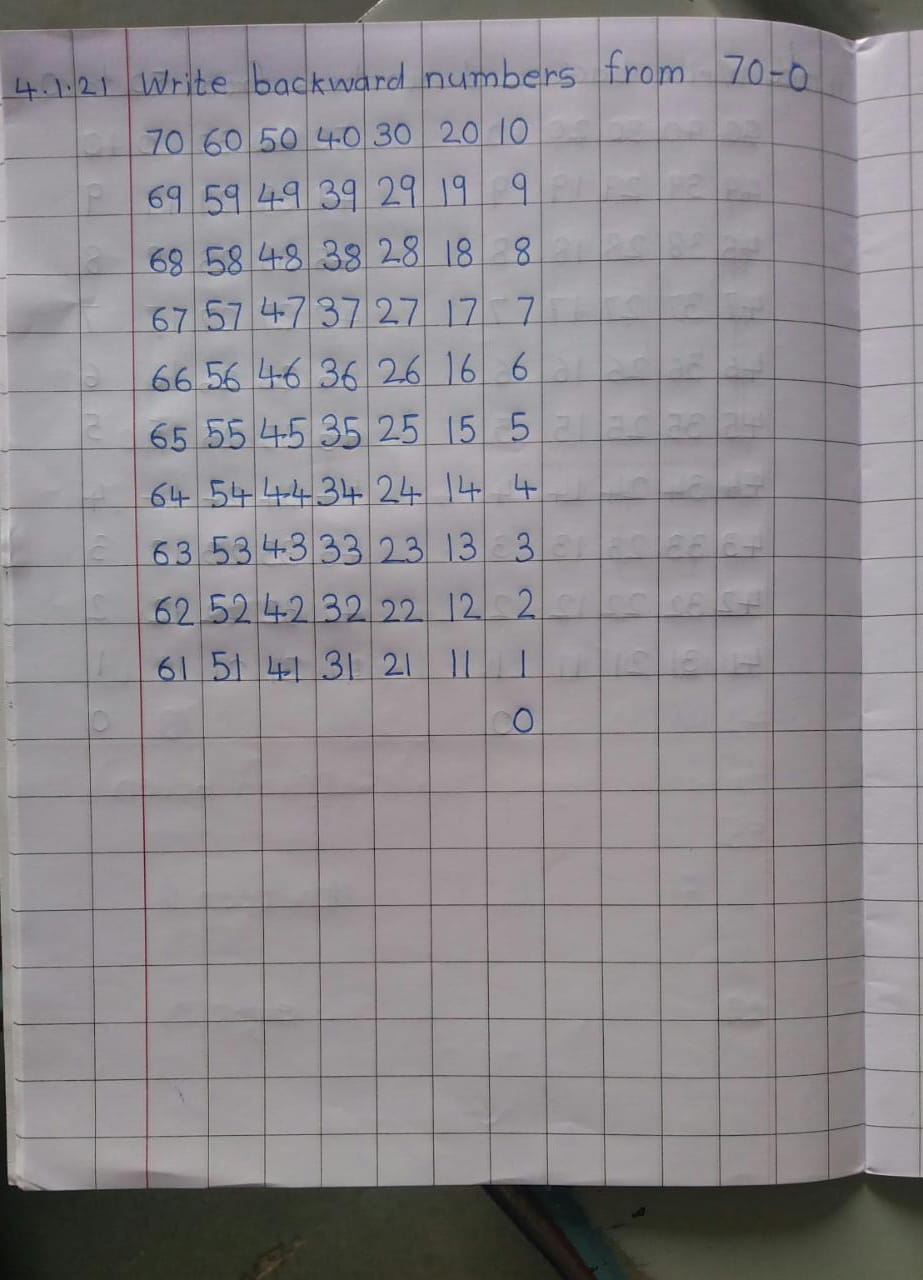 4.1.21 Write backward numbers from 70-0
70 60 50 40 30 20 10
69 59 49 39 29 19 9
68 58 48 38 28 18 8
67 57 47 37 27 17 7
66 56 46 36 26 16 6
65 55 45 35 25 15 5
64 54 44 34 24 14 4
63 53 43 33 23 13 3
62 52 42 32 22 12 2
61 51 41 31 21 11 1
0